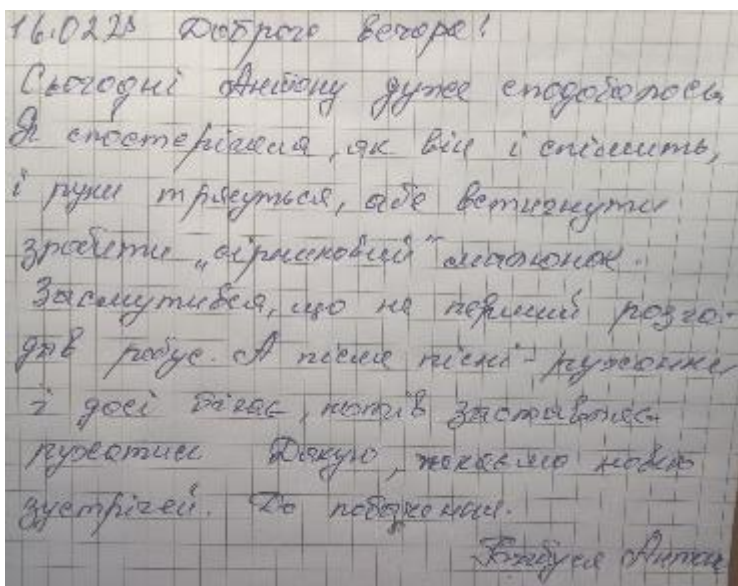 16.02 Доброго вечора!
Сьогодні Антону дуже сподобалось
Я спостерігала, як він і спішить,
і руки трясуться, аби встигнути
зробити „сірниковий" малюнок.
Засмутився, що не перший розга-
дав ребус. А після пісні-руханки
і досі бігає, котів заставляє
рухатись Дякую, чекаємо нових
зустрічей. До побачення.
Бабуся Антона